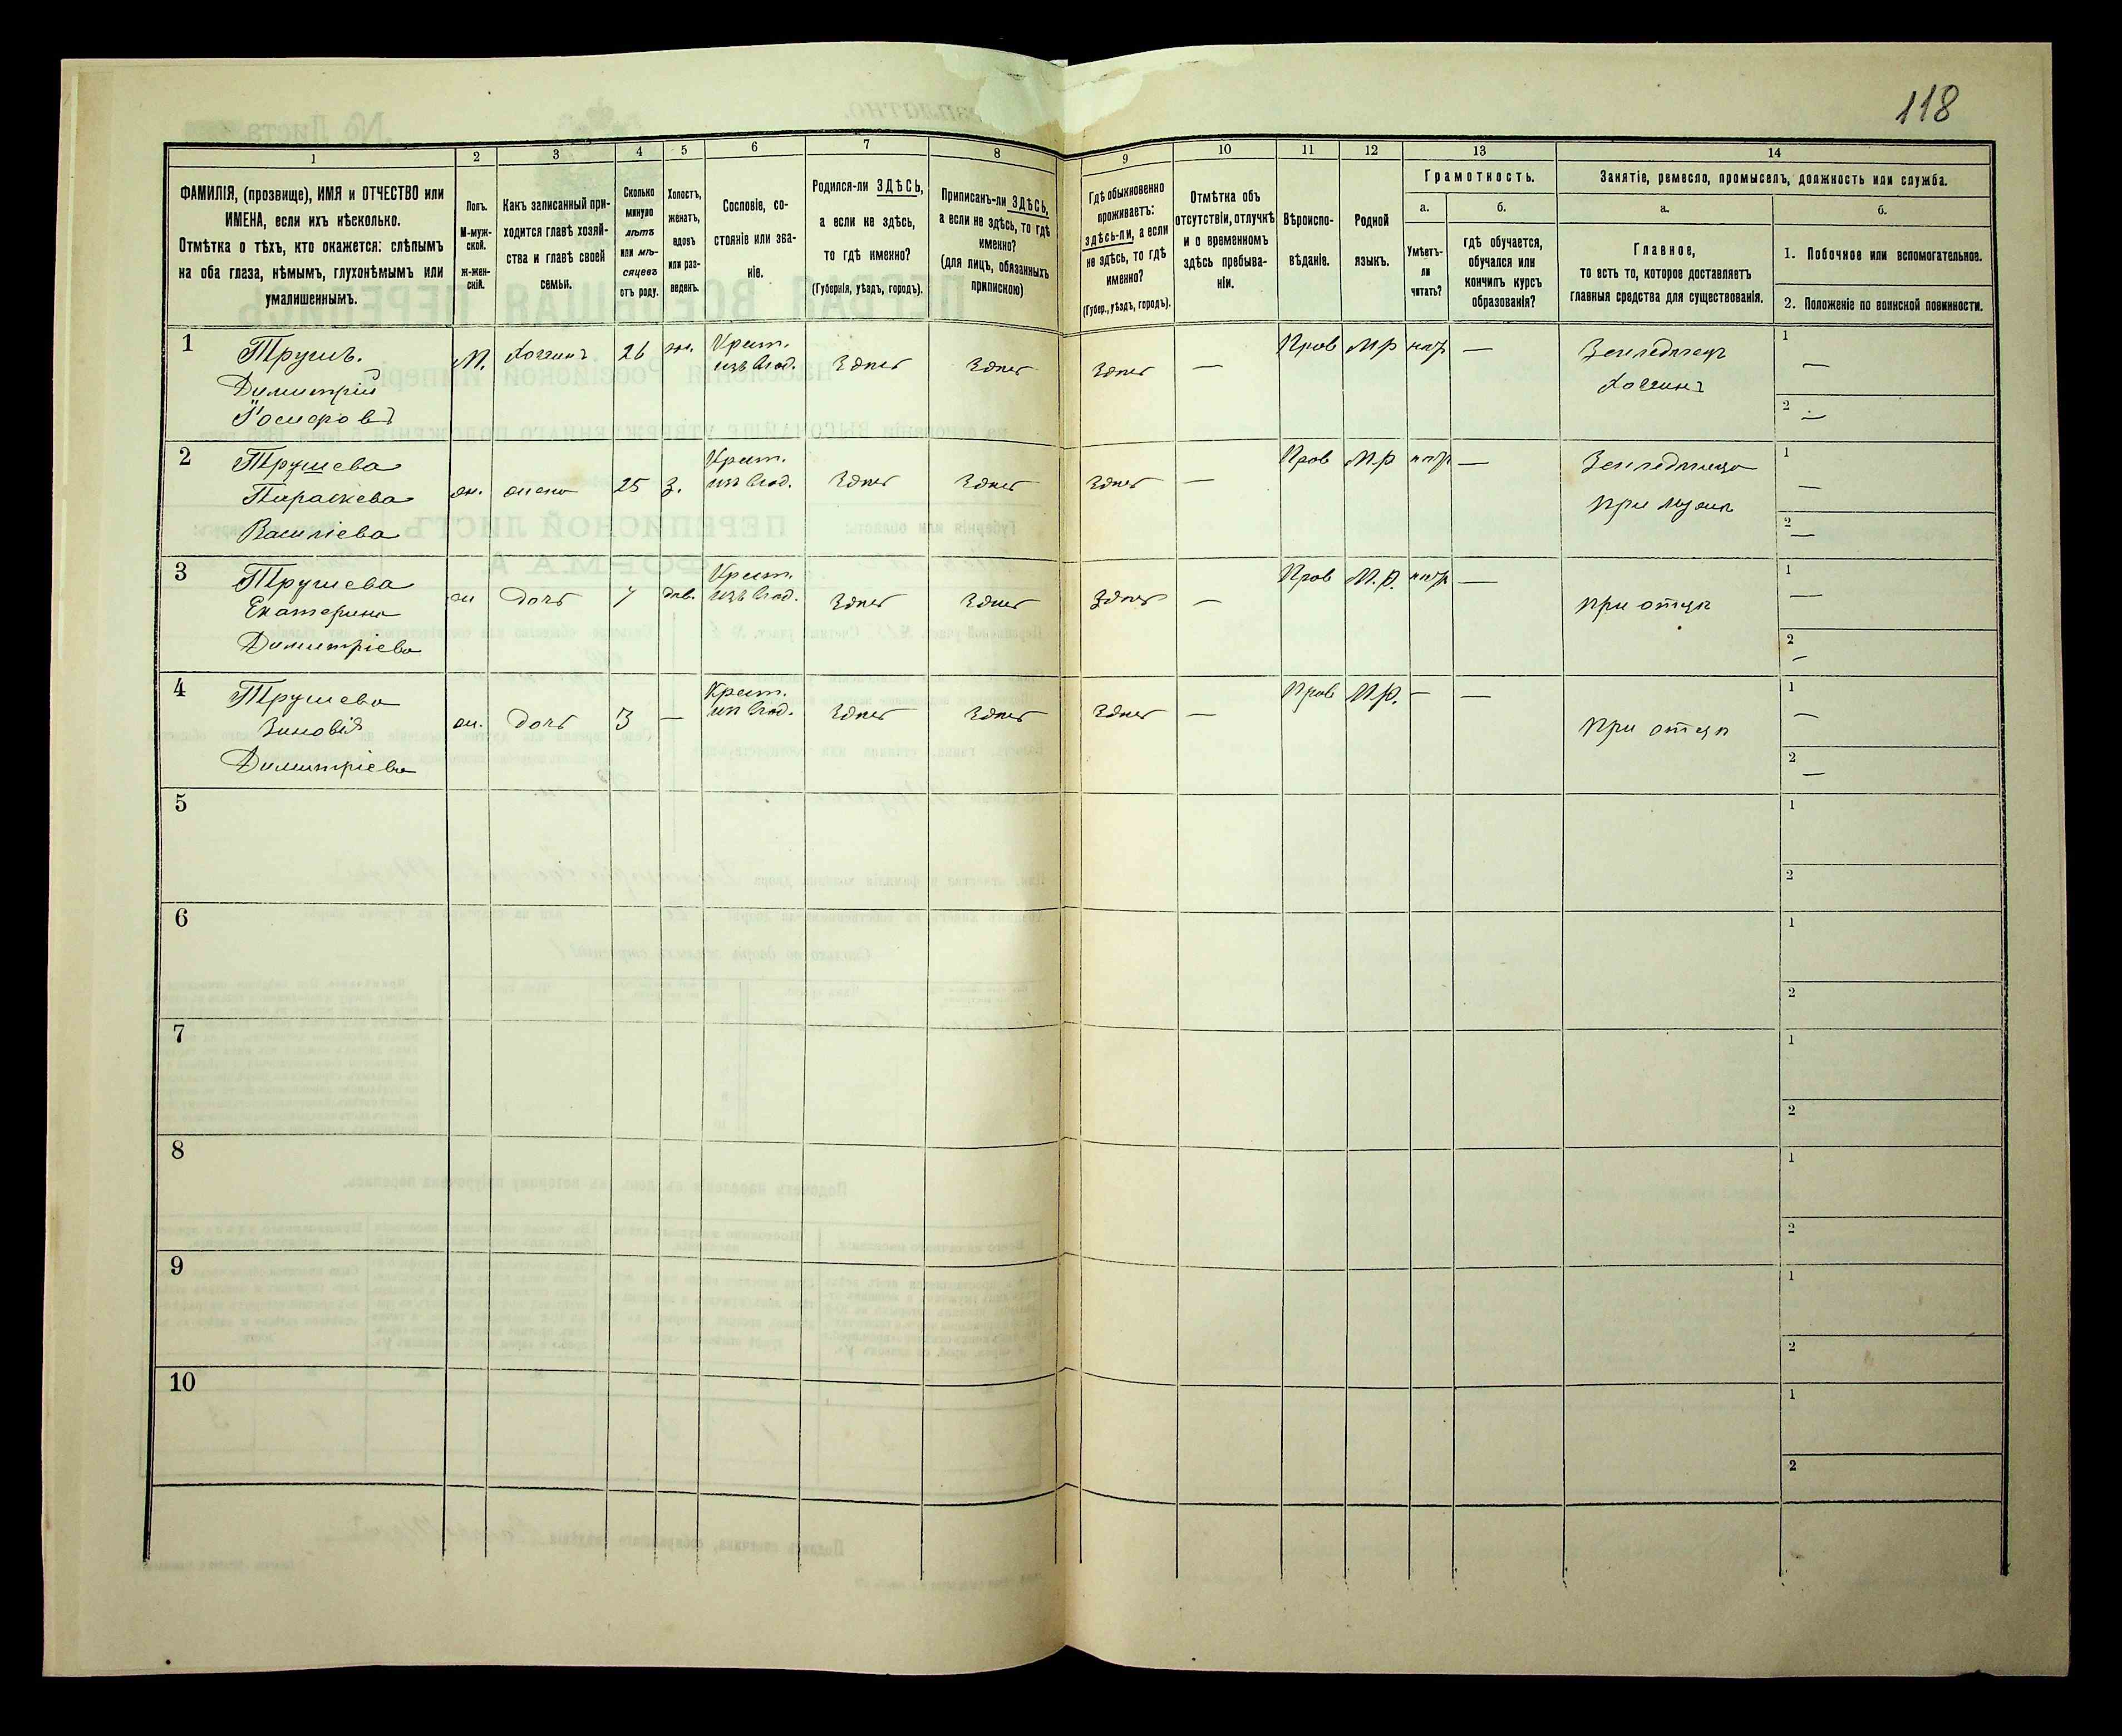 118
1
2
3
4
5
6
7
8
9
10
11
12
13
14
ФАМИЛІЯ, (прозвище), ИМЯ и ОТЧЕСТВО или
ИМЕНА, если ихъ нѣсколько.
Отмѣтка о тѣхъ, кто окажется: слѣпымъ
на оба глаза, нѣмымъ, глухонѣмымъ или
умалишеннымъ.
Полъ.
М-муж-
ской.
ж-жен-
скій.
Какъ записанный при-
ходится главѣ хозяй-
ства и главѣ своей
семьи.
Сколько
минуло
лѣтъ
или мѣ-
сяцевъ
отъ роду.
Холостъ,
женатъ,
вдовъ
или раз-
веденъ.
Сословіе, со-
стояніе или зва-
ніе.
Родился-ли ЗДѢСЬ,
а если не здѣсь,
то гдѣ именно?
(Губернія, уѣздъ, городъ).
Приписанъ-ли ЗДѢСЬ,
а если не здѣсь, то гдѣ
именно?
(для лицъ, обязанныхъ
припискою)
Гдѣ обыкновенно
проживаетъ:
здѣсь-ли, а если
не здѣсь, то гдѣ
именно?
(Губер., уѣздъ, городъ).
Отмѣтка объ
отсутствіи, отлучкѣ
и о временномъ
здѣсь пребыва-
ніи.
Вѣроиспо-
вѣданіе.
Родной
языкъ.
Грамотность.
а.
Умѣетъ-
ли
читать?
б.
гдѣ обучается,
обучался или
кончилъ курсъ
образованія?
Занятіе, ремесло, промыселъ, должность или служба.
а.
Главное,
то есть то, которое доставляетъ
главныя средства для существованія.
б.
1. Побочное или вспомогательное.
2. Положеніе по воинской повинности.
1
Трушъ.
Димитрій
Іосифовъ
М. Хозяинъ 26 ж.
Крест.
изъ влад.
Здѣсь Здѣсь Здѣсь — Пров М.Р нѣтъ —
Земледѣлецъ
Хозяинъ
1 —
2 —
2
Трушева
Параскева
Василіева
ж. жена 25 з.
Крест.
изъ влад.
Здѣсь Здѣсь Здѣсь — Пров М.Р нѣтъ —
при мужѣ
1 —
2 —
3
Трушева
Екатерина
Димитріева
ж дочь 7 дѣв.
Крест.
изъ влад.
Здѣсь Здѣсь Здѣсь — Пров М.Р. нѣтъ —
при отцѣ
1 —
2 —
4
Трушева
Зиновія
Димитріева
ж. дочь 3 —
Крест.
изъ влад.
Здѣсь Здѣсь Здѣсь — Пров М.Р. — —
при отцѣ
1 —
2 —
5
1
2
6
1
2
7
1
2
8
1
2
9
1
2
10
1
2